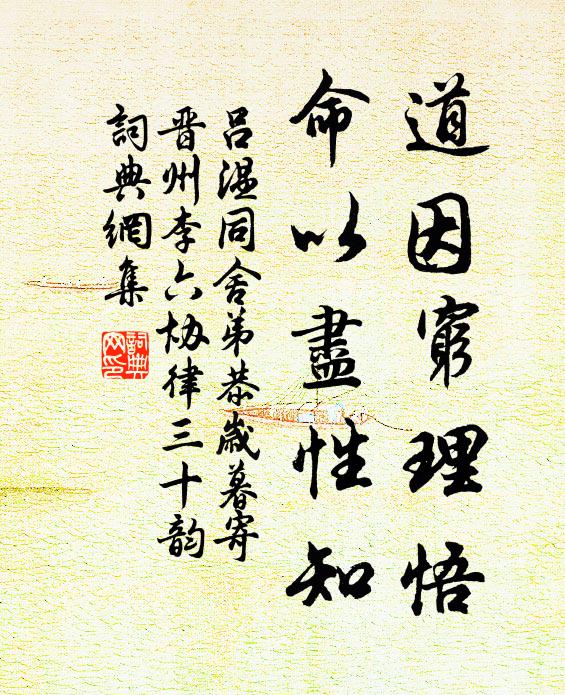 道因窮理悟
命以盡性知
呂溫同舍弟恭歲暮寄
晋州李六協律三十韵
詞典網集
詞典
网印